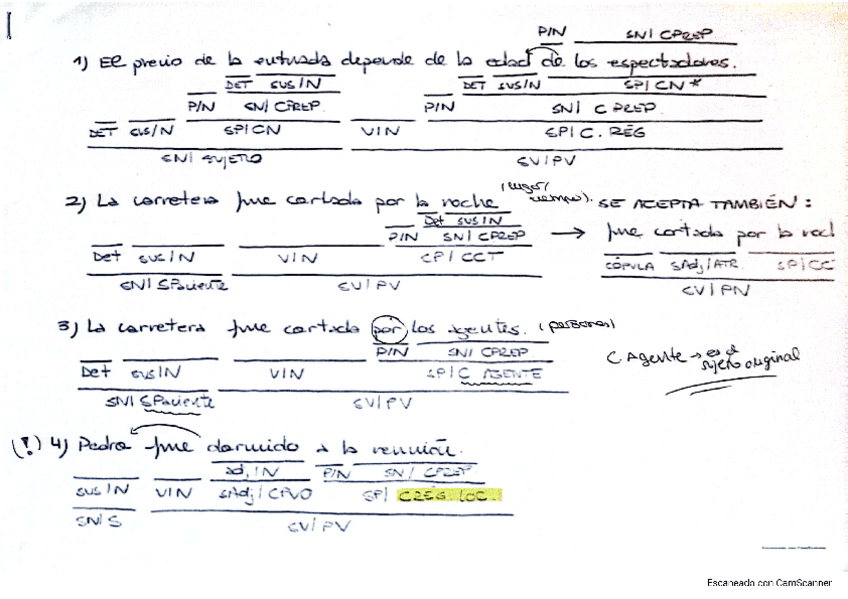 P/N SN/ CPREP
1) El precio de la entrada depende de la edad de los espectadores.
DET SUS/N DET SUS/N SP/CN *
P/N SN/ CPREP. P/N SN/ C PREP
DET SUS/N SP/CN V/N SP/ C. RÉG
SN/ SUJETO SV/PV
2) La carretera fue cortada por la noche (lugar/ tiempo). SE ACEPTA TAMBIÉN:
Det SUS/N
P/N SN/ CPREP → fue cortada por la noch
Det SUS/N V/N SP/ CCT CÓPULA SAdj/ATR. SP/CC
SN/ SPaciente SV/PV SV/PN
3) La carretera fue cortada por los agentes. (personas)
P/N SN/ CPREP C Agente → es el sujeto original
Det SUS/N V/N SP/C AGENTE
SN/ SPaciente SV/PV
(!) 4) Pedro fue dormido a la reunión.
adj/N P/N SN/ CPREP
SUS/N V/N SAdj/CPVO SP/ CRÉG. LOC.
SN/S SV/PV
Escaneado con CamScanner